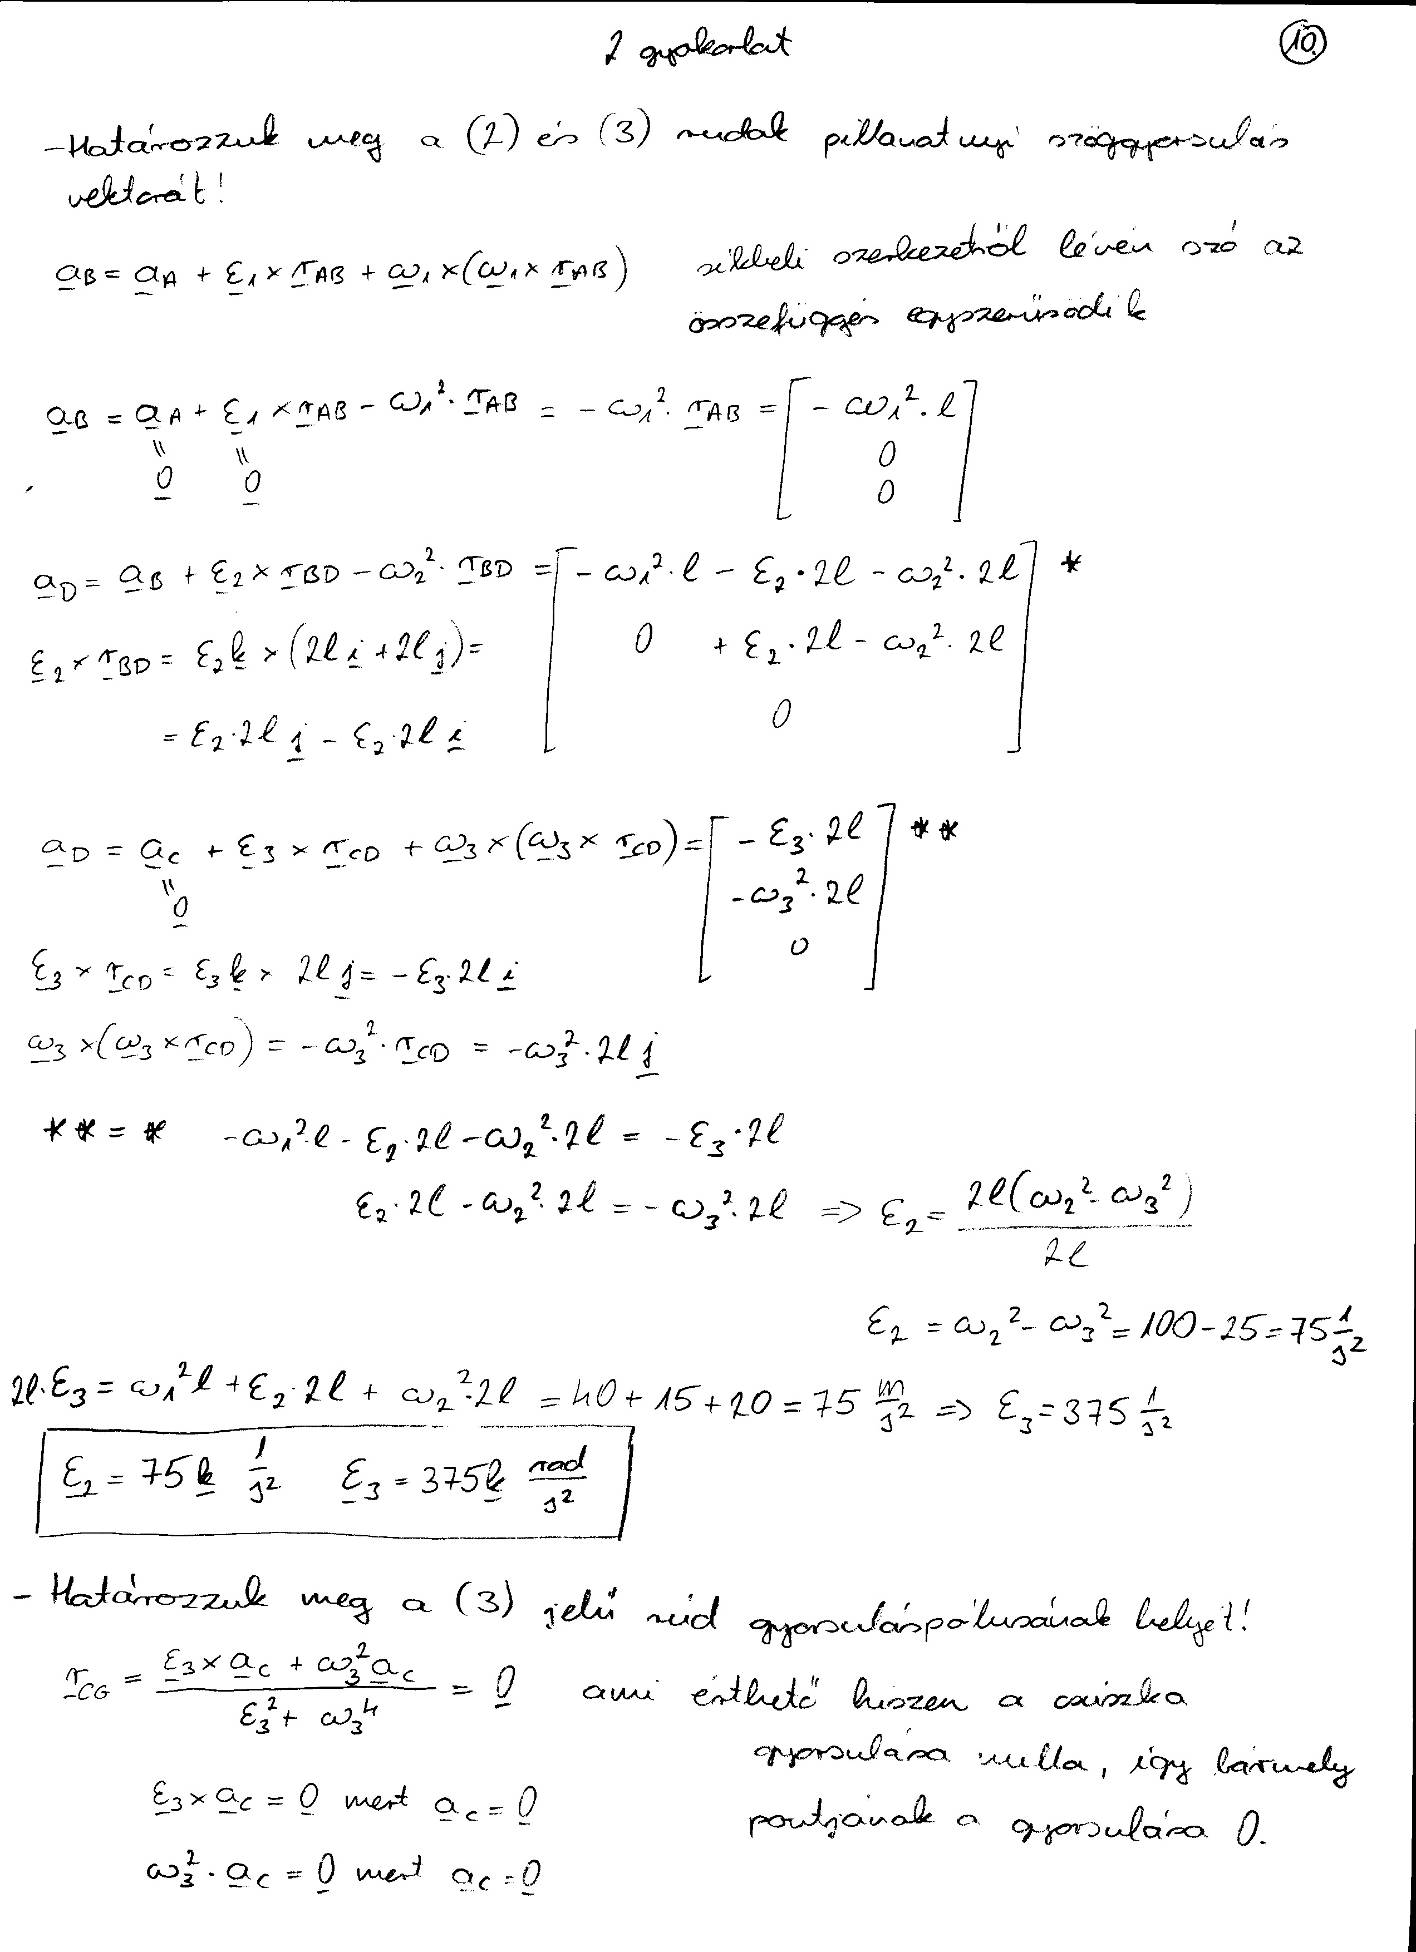 2 gyakorlat
10.
- Határozzuk meg a (2) és (3) rudak pillanatnyi szöggyorsulás
vektorát!
a_B = a_A + ε_1 × r_AB + ω_1 × (ω_1 × r_AB) síkbeli szerkezetről lévén szó az
összefüggés egyszerűsödik
a_B = a_A + ε_1 × r_AB - ω_1² · r_AB = -ω_1² · r_AB = [ -ω_1² · l
0
0 ]
" "
0 0
a_D = a_B + ε_2 × r_BD - ω_2² · r_BD = [ -ω_1² · l - ε_2 · 2l - ω_2² · 2l
0 + ε_2 · 2l - ω_2² · 2l
0 ] *
ε_2 × r_BD = ε_2 k × (2l i + 2l j) =
= ε_2 · 2l j - ε_2 · 2l i
a_D = a_C + ε_3 × r_CD + ω_3 × (ω_3 × r_CD) = [ -ε_3 · 2l
-ω_3² · 2l
0 ] **
"
0
ε_3 × r_CD = ε_3 k × 2l j = -ε_3 · 2l i
ω_3 × (ω_3 × r_CD) = -ω_3² · r_CD = -ω_3² · 2l j
** = * -ω_1² · l - ε_2 · 2l - ω_2² · 2l = -ε_3 · 2l
ε_2 · 2l - ω_2² · 2l = -ω_3² · 2l => ε_2 = 2l(ω_2² - ω_3²) / 2l
ε_2 = ω_2² - ω_3² = 100 - 25 = 75 1/s²
2l · ε_3 = ω_1² l + ε_2 · 2l + ω_2² · 2l = 40 + 15 + 20 = 75 m/s² => ε_3 = 375 1/s²
ε_2 = 75 k 1/s² ε_3 = 375 k rad/s²
- Határozzuk meg a (3) jelű rúd gyorsuláspólusának helyét!
r_CG = (ε_3 × a_C + ω_3² a_C) / (ε_3² + ω_3⁴) = 0 ami érthető hiszen a csuszka
gyorsulása nulla, így bármely
pontjának a gyorsulása 0.
ε_3 × a_C = 0 mert a_C = 0
ω_3² · a_C = 0 mert a_C = 0